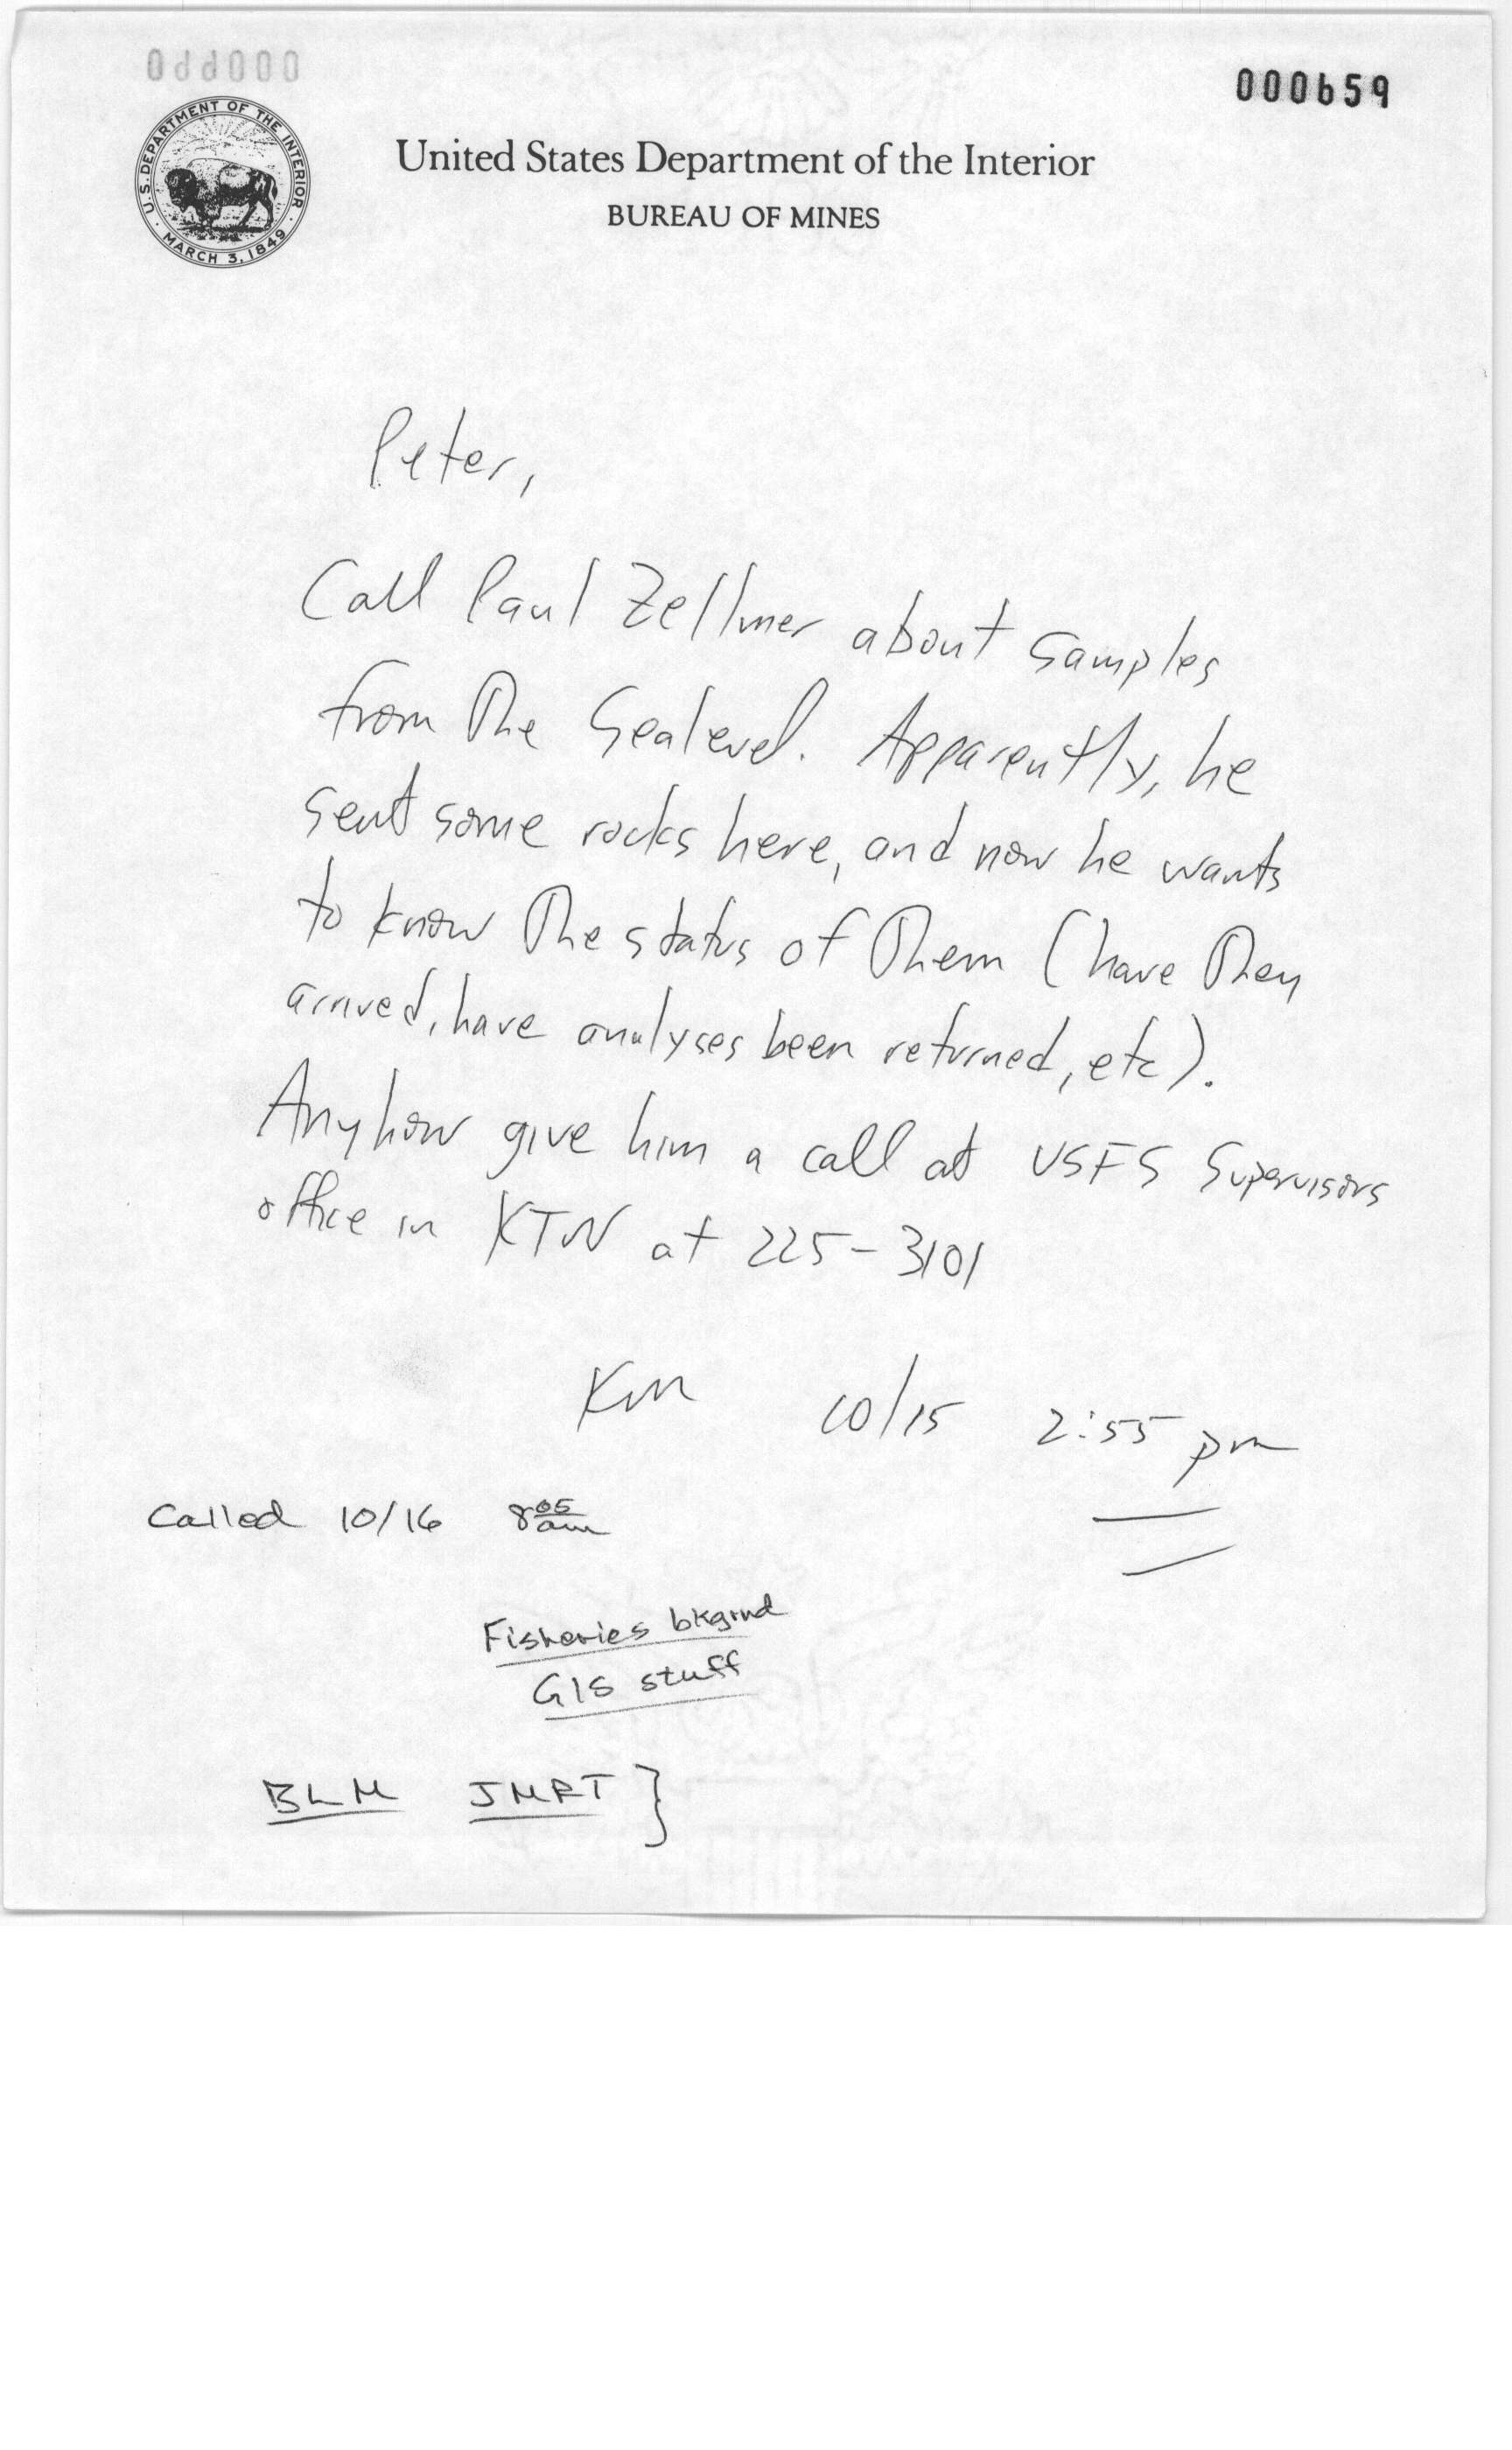 000659
U.S. DEPARTMENT OF THE INTERIOR
MARCH 3, 1849
United States Department of the Interior
BUREAU OF MINES
Peter,
Call Paul Zellmer about samples
from the Sealevel. Apparently, he
sent some rocks here, and now he wants
to know the status of them (have they
arrived, have analyses been returned, etc).
Anyhow give him a call at USFS Supervisors
office in KTN at 225-3101
10/15 2:55 pm
Called 10/16 8:05 am
Fisheries bkgrnd
GIS stuff
BLM JMRT }